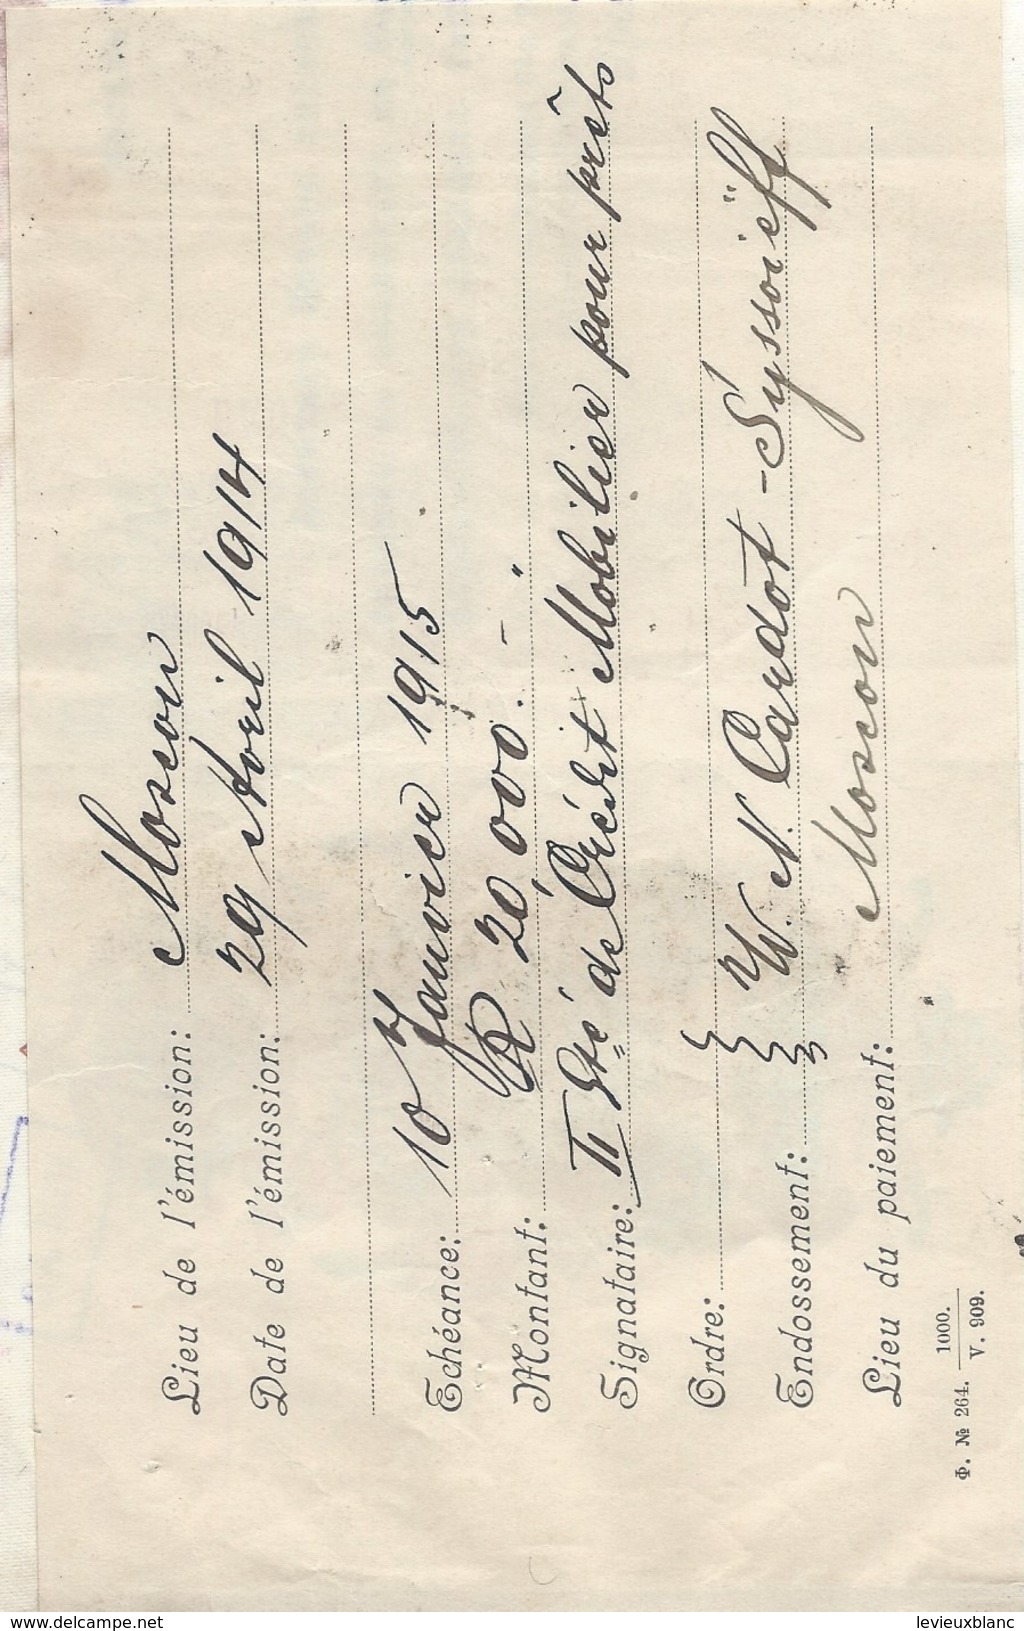 Lieu de l'émission: Moscou
Date de l'émission: 29 Avril 1914
Echéance: 10 Janvier 1915
Montant: R 20'000.-"
Signataire: II Sté de Crédit Mobilier pour prêts
Ordre:
Endossement: W. N. Cardot-Syssoiëff
Lieu du paiement: Moscou
Ф. № 264. 1000. / V. 909.
levieuxblanc